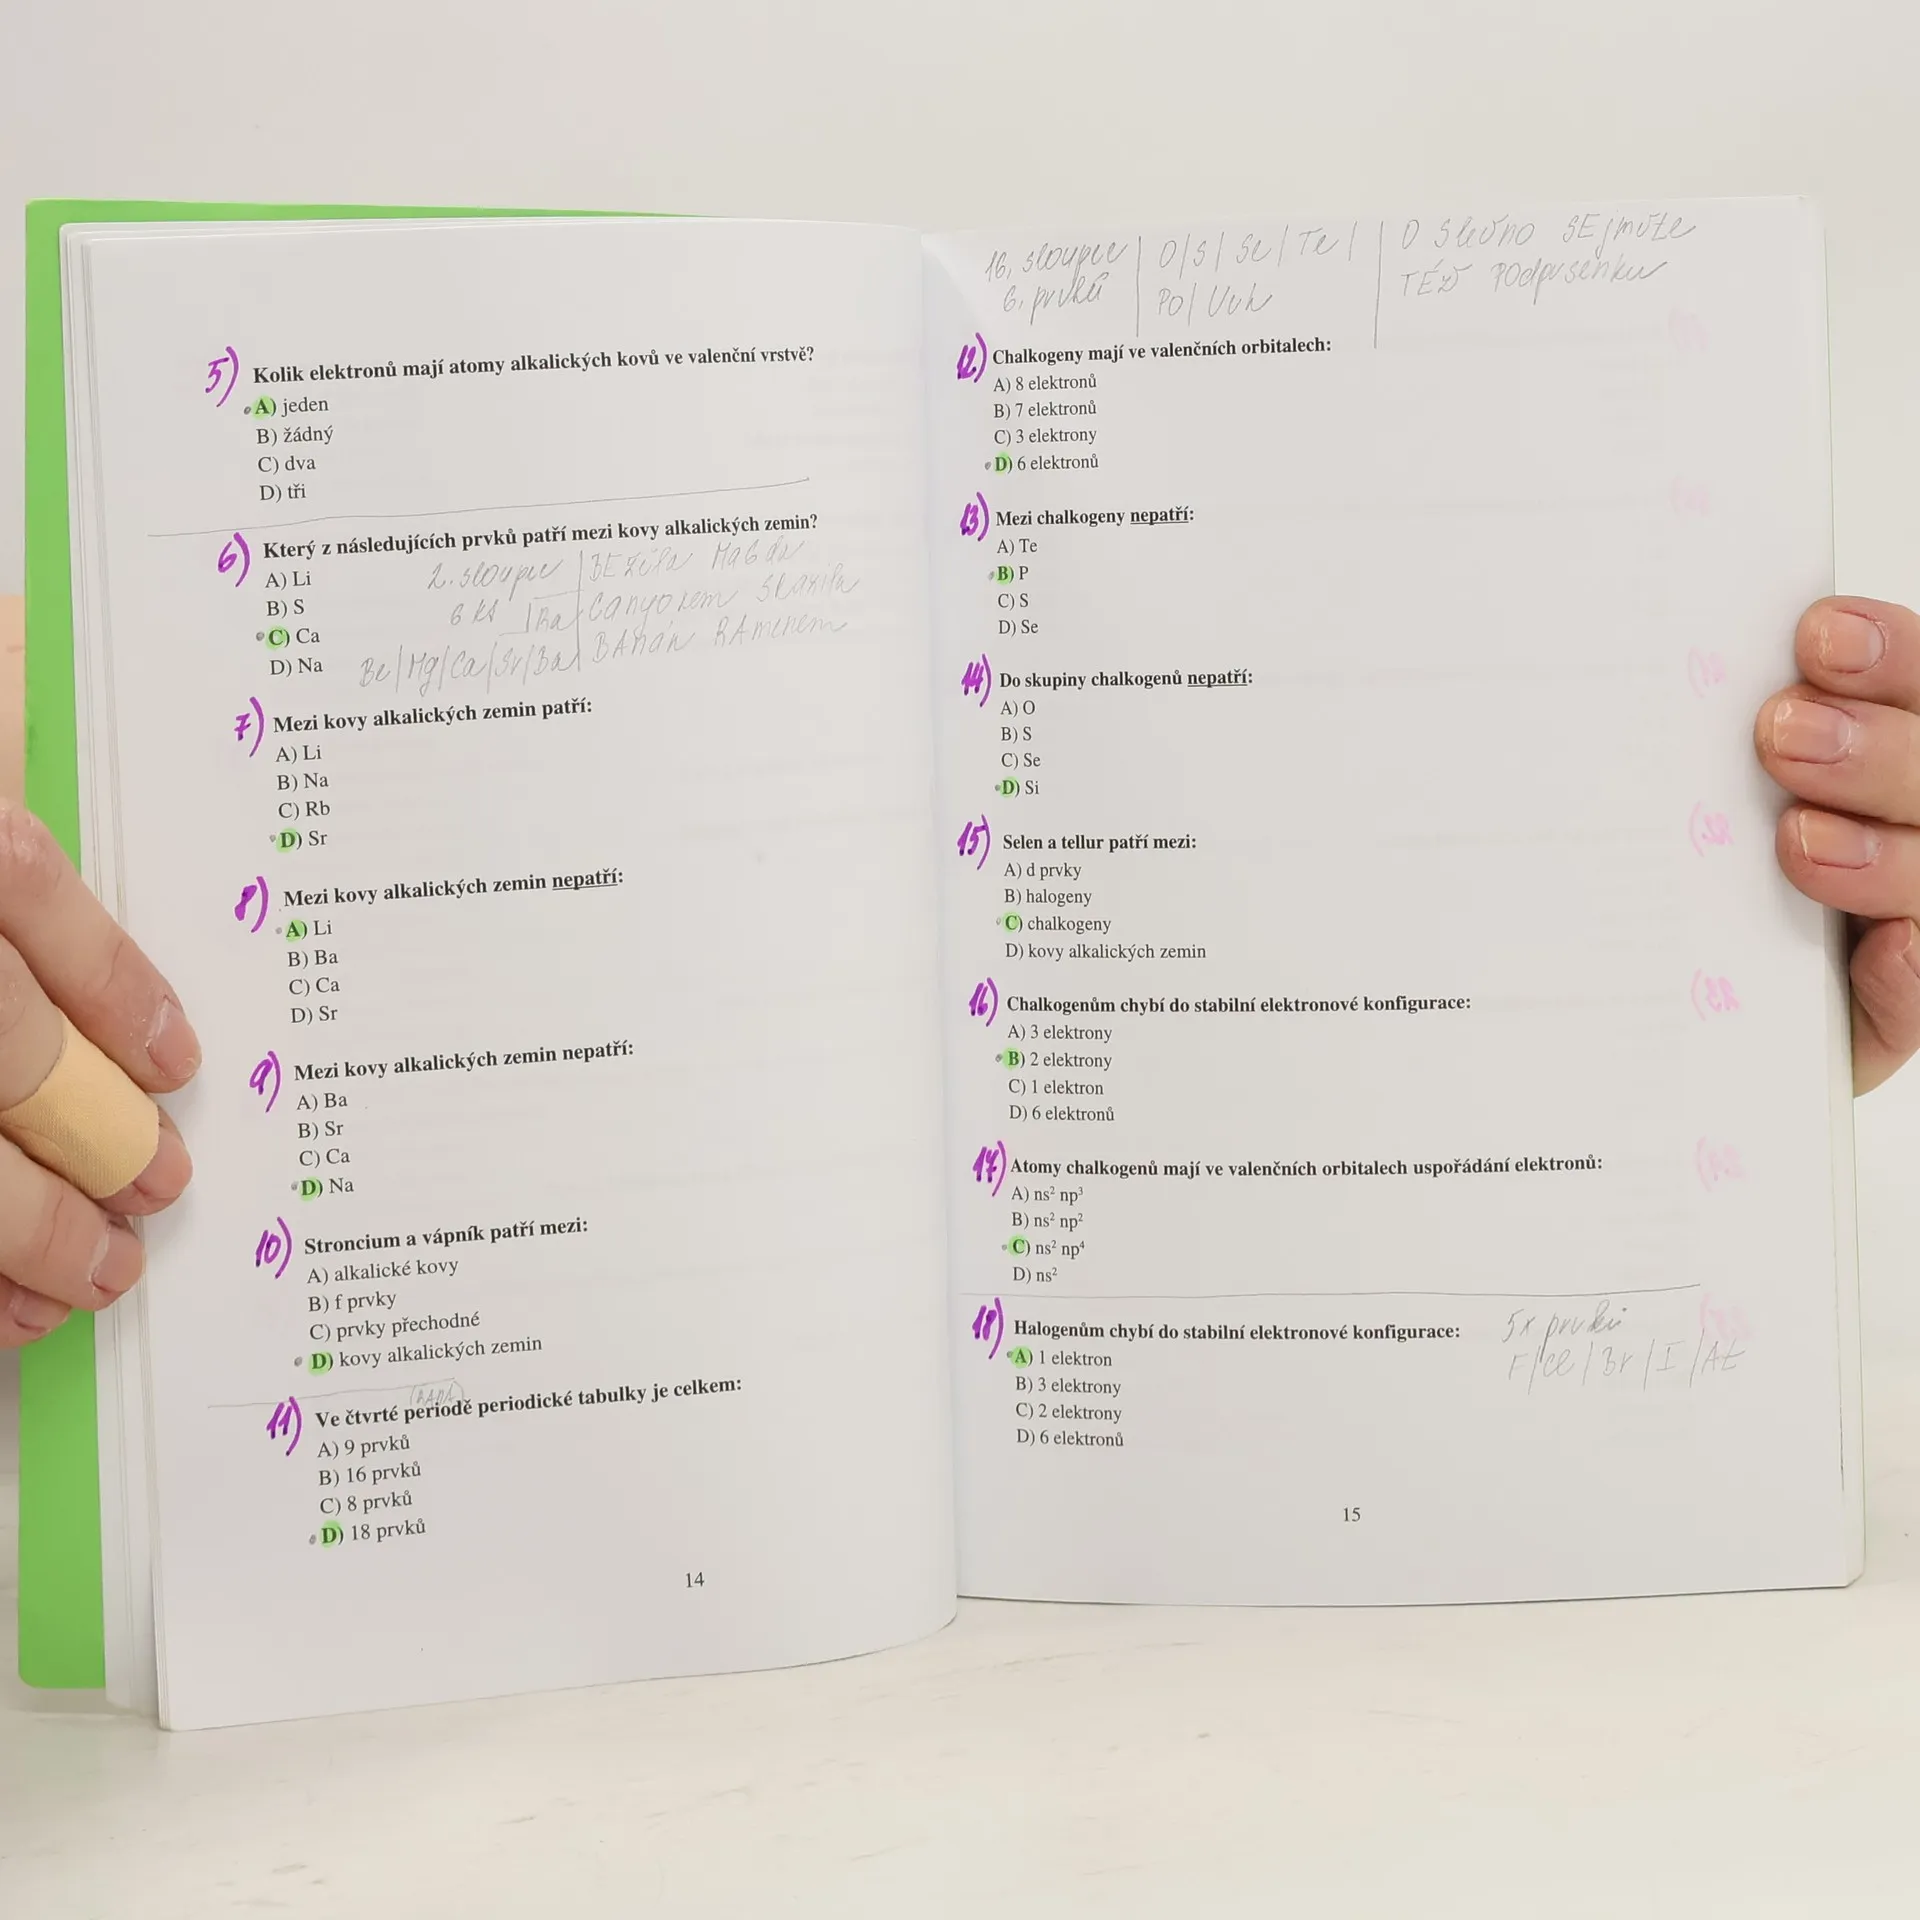 5) Kolik elektronů mají atomy alkalických kovů ve valenční vrstvě?
A) jeden
B) žádný
C) dva
D) tři
6) Který z následujících prvků patří mezi kovy alkalických zemin?
A) Li
B) S
C) Ca
D) Na
2. sloupec
6 ks
Ra
Be | Mg | Ca | Sr | Ba
BĚŽELA MAGDA
CANYONEM
BANÁN RAMENEM
7) Mezi kovy alkalických zemin patří:
A) Li
B) Na
C) Rb
D) Sr
8) Mezi kovy alkalických zemin nepatří:
A) Li
B) Ba
C) Ca
D) Sr
9) Mezi kovy alkalických zemin nepatří:
A) Ba
B) Sr
C) Ca
D) Na
10) Stroncium a vápník patří mezi:
A) alkalické kovy
B) f prvky
C) prvky přechodné
D) kovy alkalických zemin
(ŘADA)
11) Ve čtvrté periodě periodické tabulky je celkem:
A) 9 prvků
B) 16 prvků
C) 8 prvků
D) 18 prvků
14
16. sloupec
6. prvků
O | S | Se | Te |
Po | Uuh
O SLEČNO SEjmůte
TÉŽ POdprsenku
12.) Chalkogeny mají ve valenčních orbitalech:
A) 8 elektronů
B) 7 elektronů
C) 3 elektrony
D) 6 elektronů
13) Mezi chalkogeny nepatří:
A) Te
B) P
C) S
D) Se
14) Do skupiny chalkogenů nepatří:
A) O
B) S
C) Se
D) Si
15) Selen a tellur patří mezi:
A) d prvky
B) halogeny
C) chalkogeny
D) kovy alkalických zemin
16) Chalkogenům chybí do stabilní elektronové konfigurace:
A) 3 elektrony
B) 2 elektrony
C) 1 elektron
D) 6 elektronů
17) Atomy chalkogenů mají ve valenčních orbitalech uspořádání elektronů:
A) ns² np³
B) ns² np²
C) ns² np⁴
D) ns²
18) Halogenům chybí do stabilní elektronové konfigurace:
A) 1 elektron
B) 3 elektrony
C) 2 elektrony
D) 6 elektronů
5x prvků
F | Cl | Br | I | At
15